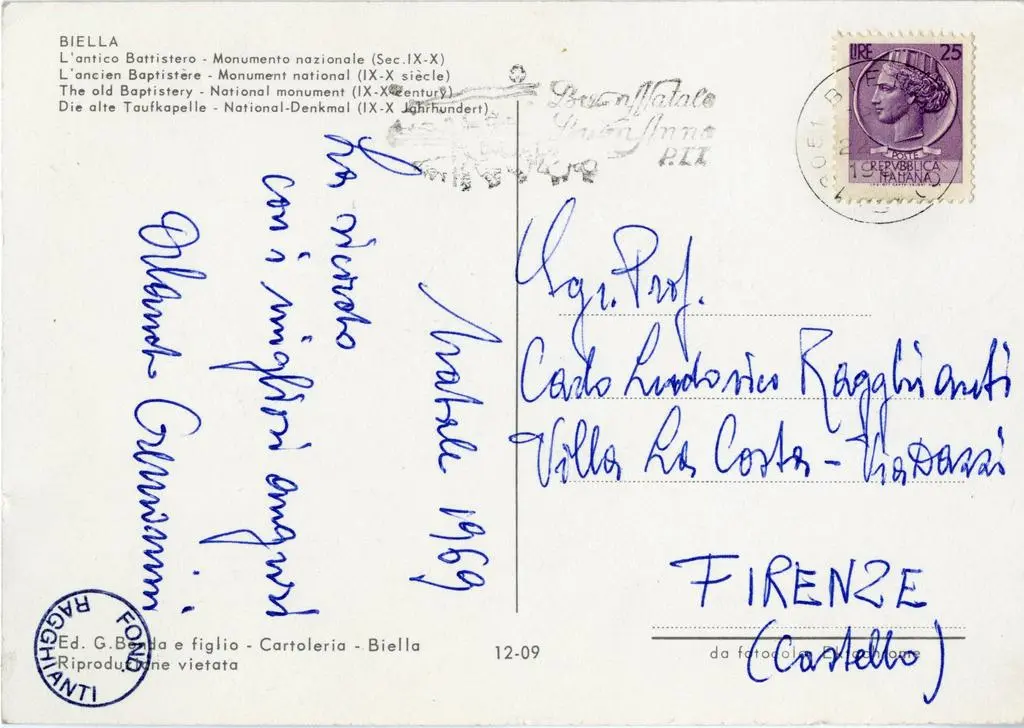 BIELLA
L'antico Battistero - Monumento nazionale (Sec. IX-X)
L'ancien Baptistère - Monument national (IX-X siècle)
The old Baptistery - National monument (IX-X century)
Die alte Taufkapelle - National-Denkmal (IX-X Jahrhundert)
Buon Natale
Buon Anno
P.TT
LIRE 25
POSTE
REPVBBLICA
ITALIANA
Natale 1969
La ricordo
con i migliori auguri
Sgr. Prof.
Carlo Ludovico Ragghianti
Villa La Costa - Via Dazzi
FIRENZE
(Castello)
FOND. RAGGHIANTI
Ed. G. Benda e figlio - Cartoleria - Biella
Riproduzione vietata
12-09
da fotocolor Ektachrome